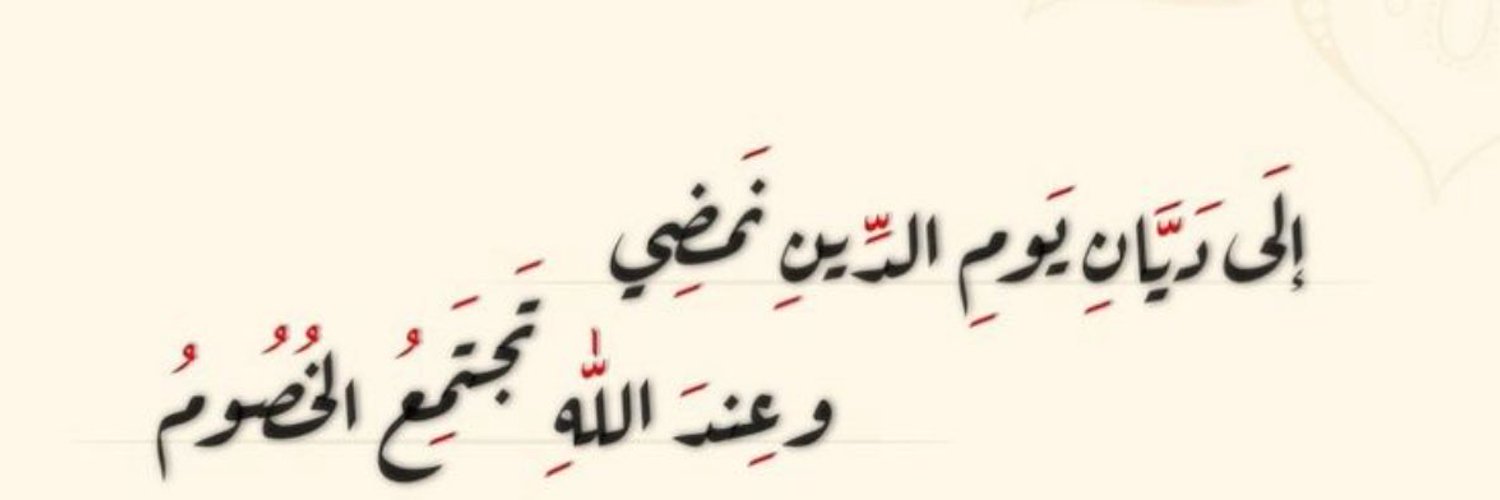 إلَى دَيَّانِ يَومِ الدِّينِ نَمضِي
وعِندَ اللّٰهِ تَجتَمِعُ الخُصُومُ